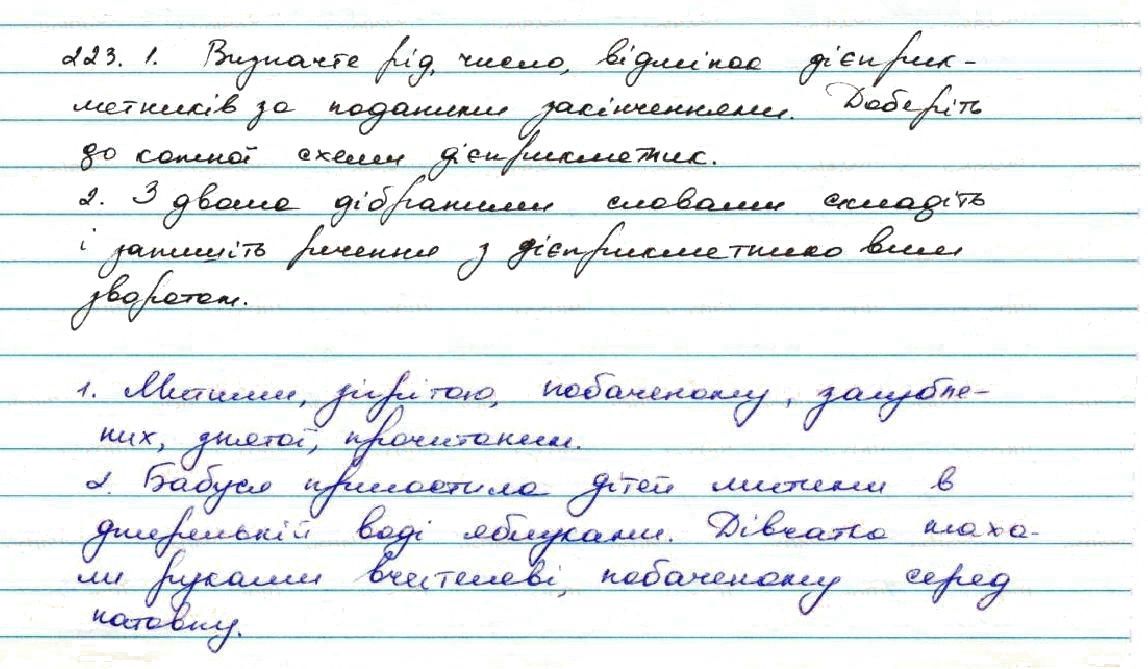 223. 1. Визначте рід, число, відмінок дієприк-
метників за поданими закінченнями. Доберіть
до кожної схеми дієприкметник.
2. З двома дібраними словами складіть
і запишіть речення з дієприкметниковим
зворотом.
1. Митими, зігрітою, побаченому, загубле-
них, знятої, прочитаним.
2. Бабуся пригостила дітей митими в
джерельній воді яблуками. Дівчатка маха-
ли руками вчителеві, побаченому серед
натовпу.